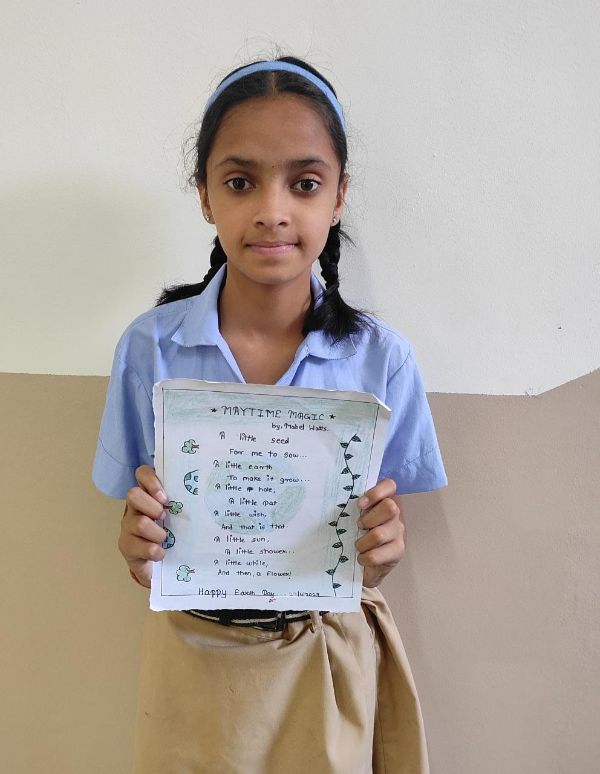 ★ MAYTIME MAGIC ★
by, Mabel Watts.
A little seed
For me to sow...
A little earth
To make it grow...
A little hole,
A little pat
A little wish,
And that is that
A little sun,
A little shower..
A little while,
And then, a Flower!
Happy Earth Day...